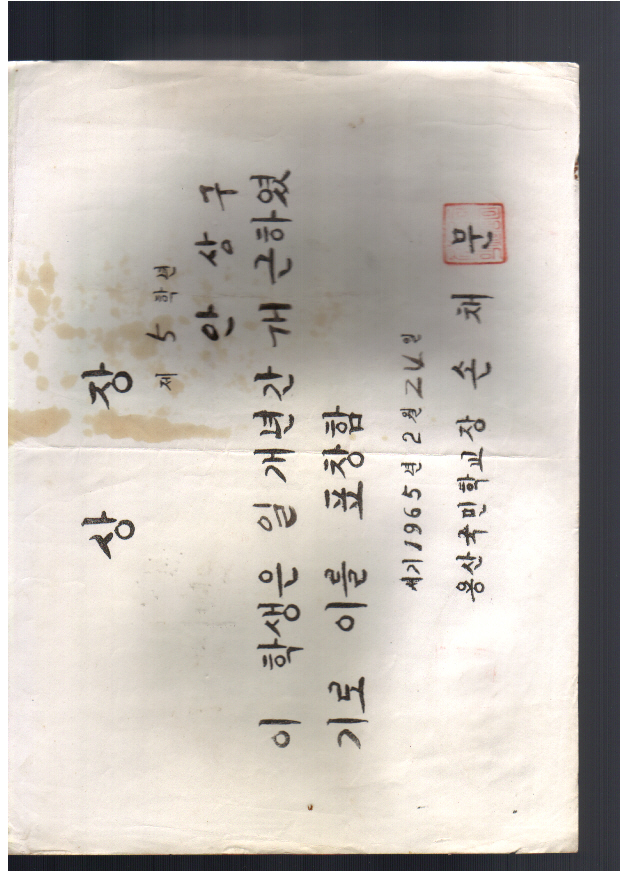 상 장
제 5 학년
안 상 구
이 학생은 일 개년간 개 근하였
기로 이를 표창함
서기 1965 년 2 월 24 일
용산국민학교장 손 채 문